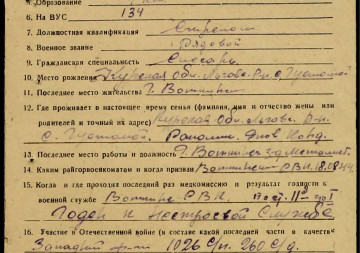 5. Образование
6. На ВУС 134
7. Должностная квалификация Стрелок
8. Военное звание Рядовой
9. Гражданская специальность Слесарь
10. Место рождения Курская Обл. Льгов. Р-н. с. Густомой
11. Последнее место жительства Г. Воткинск
12. Где проживает в настоящее время семья (фамилия, имя и отчество жены или
родителей и точный их адрес) Курской Обл. Льгов. р-н
с. Густомой.
13. Последнее место работы и должность Г. Воткинск
14. Каким райгорвоенкоматом и когда призван Воткинский РВК.
15. Когда и где проходил последний раз медкомиссию и результат годности к
военной службе Воткинс РВК.
Годен к нестроевой службе
16. Участие в Отечественной войне (в составе какой последней части и качестве
Западный 1026 с/п. 260 с/д.